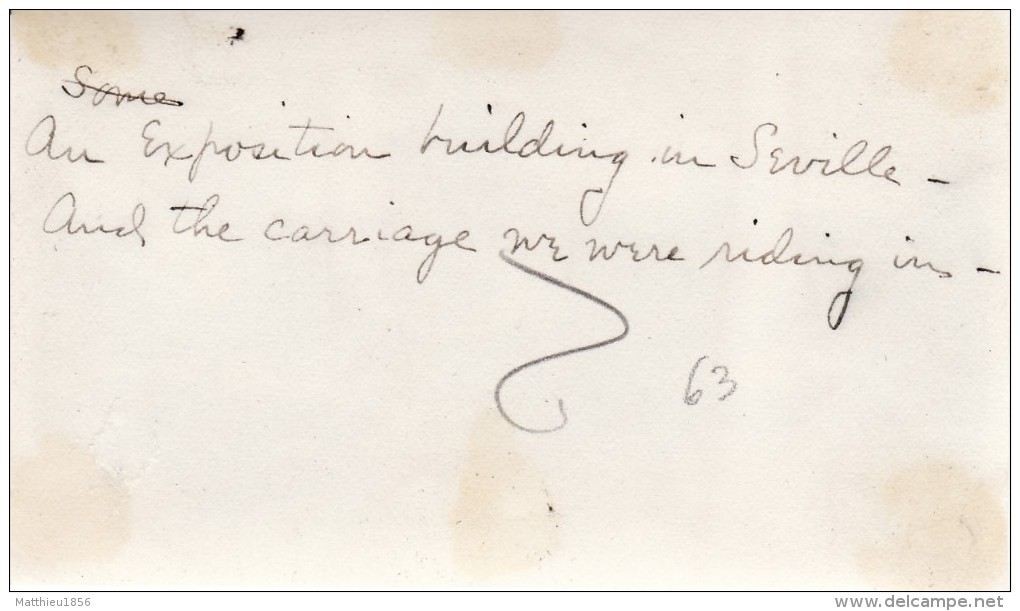 Some
An Exposition building in Seville -
And the carriage we were riding in -
63
Matthieu1856
delcampe.net